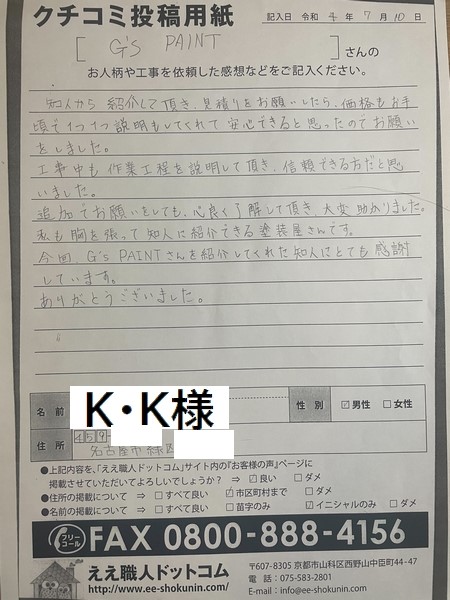 クチコミ投稿用紙
記入日 令和 4 年 7 月 10 日
[ G's PAINT ] さんの
お人柄や工事を依頼した感想などをご記入ください。
知人から 紹介して頂き、見積りをお願いしたら、価格もお手
頃で1つ1つ説明もしてくれて安心できると思ったのでお願い
をしました。
工事中も作業工程を説明して頂き、信頼できる方だと思
いました。
追加でお願いをしても、心良く了解して頂き、大変助かりました。
私も胸を張って知人に紹介できる塗装屋さんです。
今回、G's PAINTさんを紹介してくれた知人にとても感謝
しています。
ありがとうございました。
名前 K・K様 性別 ☑男性 □女性
住所 459-
名古屋市緑区
●上記内容を、「ええ職人ドットコム」サイト内の『お客様の声』ページに
掲載させていただいてよろしいでしょうか? ⇒ ☑良い □ダメ
●住所の掲載について ⇒ □すべて良い ☑市区町村まで □ダメ
●名前の掲載について ⇒ □すべて良い □苗字のみ ☑イニシャルのみ □ダメ
フリーコール FAX 0800-888-4156
ええ職人ドットコム
http://www.ee-shokunin.com/
〒607-8305 京都市山科区西野山中臣町44-47
電話:075-583-2801
E-mail:info@ee-shokunin.com